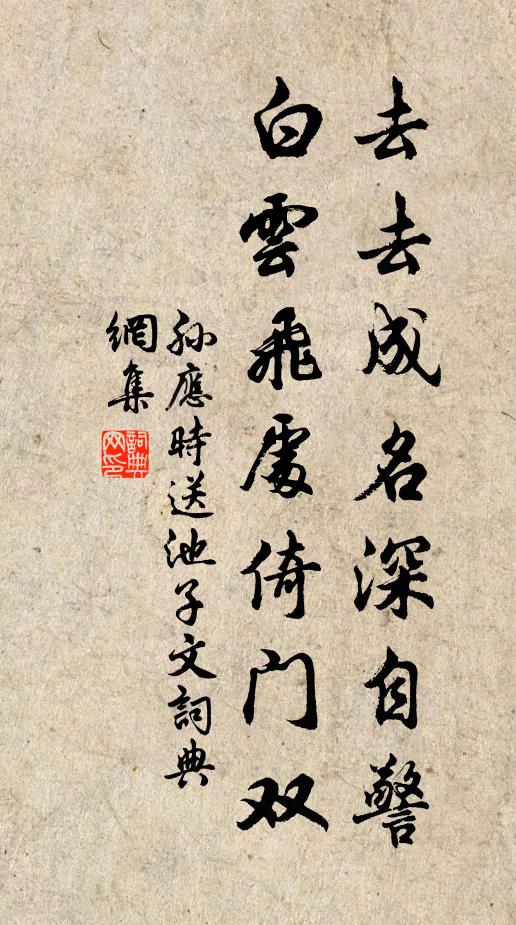 去去成名深自警
白雲飛處倚门双
孙應時送池子文詞典
網集
詞典網印